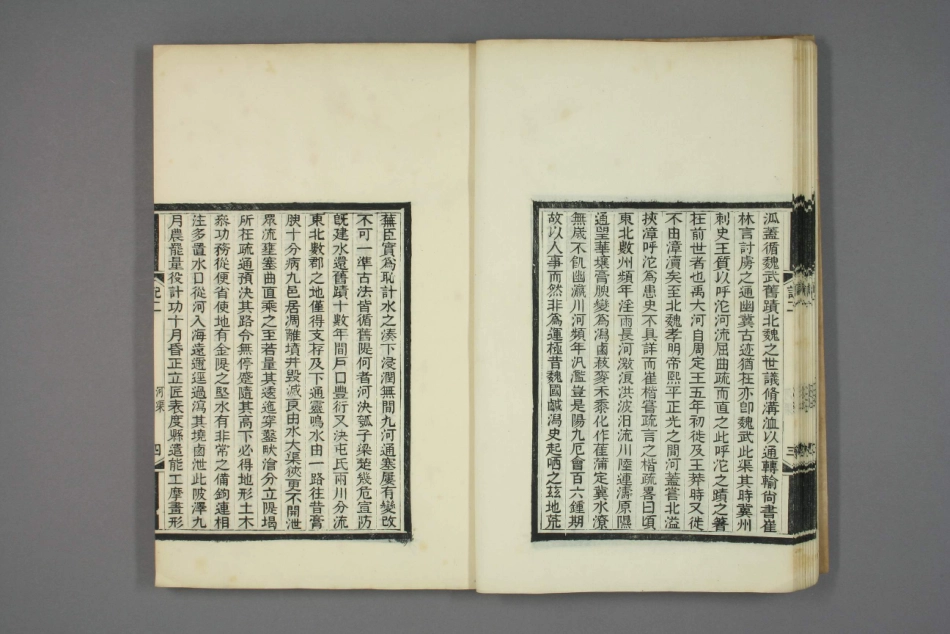 泒蓋循魏武舊蹟北魏之世議脩溝洫以通轉輸尙書崔
林言計虜之通幽冀古迹猶在亦卽魏武此渠其時冀州
刺史王質以呼沱河流屈曲疏而直之此呼沱之蹟之著
在前世者也禹大河自周定王五年初徙及王莽時又徙
不由漳瀆矣至北魏孝明帝熙平正光之間河蓋嘗北溢
挾漳呼沱爲患史不具詳而崔楷嘗疏言之楷疏畧曰頃
東北數州頻年淫雨長河激浪洪波汨流川陸連濤原隰
通望華壤膏腴變爲潟鹵菽麥禾黍化作雚蒲定冀水潦
無歲不飢幽瀛川河頻年汎濫豈是陽九厄會百六鍾期
故以人事而然非爲運極昔魏國鹹潟史起哂之茲地荒
蕪臣實爲恥計水之湊下浸潤無間九河通塞屢有變改
不可一準古法皆循舊隄何者河決瓠子梁楚幾危宣防
旣建水還舊蹟十數年間戶口豐衍又決屯氏兩川分流
東北數郡之地僅得支存及下通靈鳴水由一路往昔膏
腴十分病九邑居凋離墳井毀滅良由水大渠狹更不開泄
眾流壅塞曲直乘之至若量其逶迤穿鑿畎澮分立隄堨
所在疏通預決其路令無停蹙隨其高下必得地形土木
參功務從便省使地有金隄之堅水有非常之備鉤連相
注多置水口從河入海遠邇逕過瀉其墝鹵泄此陂澤九
月農罷量役計功十月昏正立匠表度縣遣能工摩畫形
記二
河渠
四